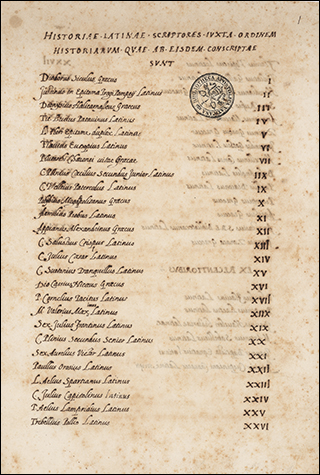 1
HISTORIAE LATINAE SCRIPTORES IVXTA ORDINEM
HISTORIARVM QVAE AB EISDEM CONSCRIPTAE
SVNT
Diodorus Siculus Graecus I
Justinus in Epitoma Trogi Pompeij Latinus II
Dionysius Halicarnaseus Graecus III
Tit Livius Patavinus Latinus IV
V
Eutropius Latinus VI
vitae Graecae VII
C Plinius Caecilius Secundus Junior Latinus IIX
C Velleius Paterculus Latinus IX
Polybius Megalopolitanus Graecus X
Aemilius Probus Latinus XI
Appianus Alexandrinus Graecus XII
C Salustius Crispus Latinus XIII
C Julius Caesar Latinus XIV
C Suetonius Tranquillus Latinus XV
Dio Cassius Nicaeus Graecus XVI
P Cornelius Tacitus Latinus XVII
M Valerius Maximus Latinus XIIX
Sex Julius Frontinus Latinus XIX
C Plinius Secundus Senior Latinus XX
Sex Aurelius Victor Latinus XXI
Paulus Orosius Latinus XXII
L Aelius Spartianus Latinus XXIII
C Julius Capitolinus Latinus XXIV
P Aelius Lampridius Latinus XXV
Trebellius Pollio Latinus XXVI